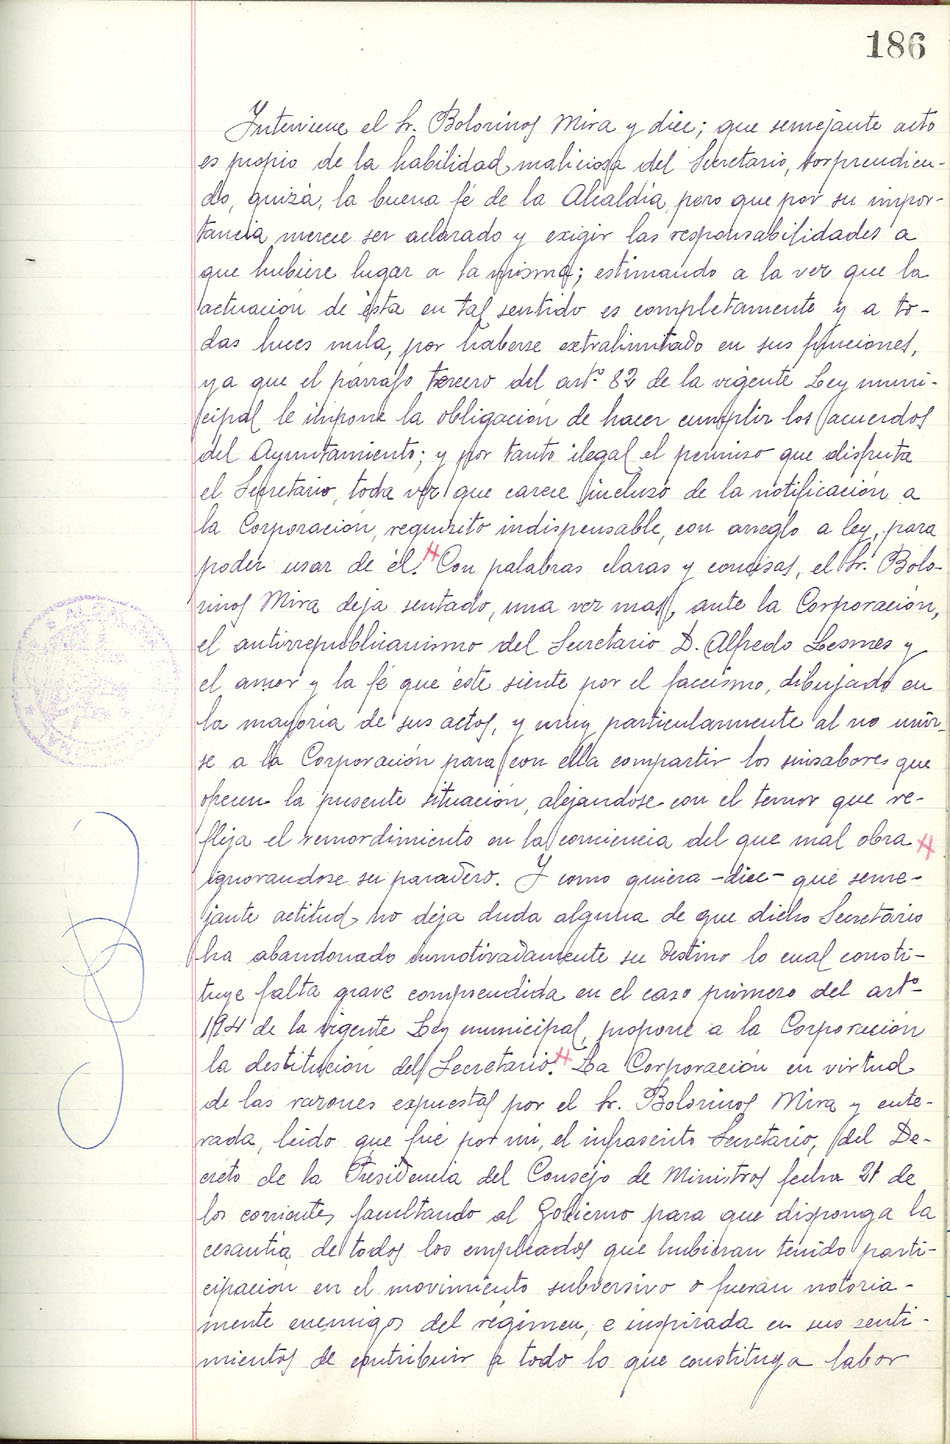 186
Interviene el Sr. Bolorinos Mira y dice; que semejante acto
es propio de la habilidad maliciosa del Secretario, sorprendien-
do, quizá, la buena fé de la Alcaldía, pero que por su impor-
tancia merece ser aclarado y exigir las responsabilidades a
que hubiere lugar a la misma; estimando a la vez que la
actuación de ésta en tal sentido es completamente y a to-
das luces nula, por haberse extralimitado en sus funciones,
ya que el párrafo tercero del artº 82 de la vigente Ley muni-
cipal le impone la obligación de hacer cumplir los acuerdos
del Ayuntamiento; y por tanto ilegal el permiso que disfruta
el Secretario, toda vez que carece incluso de la notificación a
la Corporación, requisito indispensable, con arreglo a ley, para
poder usar de él. Con palabras claras y concisas, el Sr. Bolo-
rinos Mira deja sentado, una vez mas, ante la Corporación,
el antirrepublicanismo del Secretario D. Alfredo Lesmes y
el amor y la fé que éste siente por el faccismo, dibujado en
la mayoría de sus actos, y muy particularmente al no unir-
se a la Corporación para con ella compartir los sinsabores que
ofrecen la presente situación, alejandose con el temor que re-
fleja el remordimiento en la conciencia del que mal obra
ignorandose su paradero. Y como quiera -dice- que seme-
jante actitud no deja duda alguna de que dicho Secretario
ha abandonado inmotivadamente su destino lo cual consti-
tuye falta grave comprendida en el caso primero del artº
194 de la vigente Ley municipal, propone a la Corporación
la destitución del Secretario. La Corporación en virtud
de las razones expuestas por el Sr. Bolorinos Mira y ente-
rada, leido que fué por mi, el infrascrito Secretario, del De-
creto de la Presidencia del Consejo de Ministros fecha 21 de
los corrientes facultando al Gobierno para que disponga la
cesantía de todos los empleados que hubieran tenido parti-
cipación en el movimiento subversivo o fueran notoria-
mente enemigos del régimen, e inspirada en sus senti-
mientos de contribuir a todo lo que constituya labor